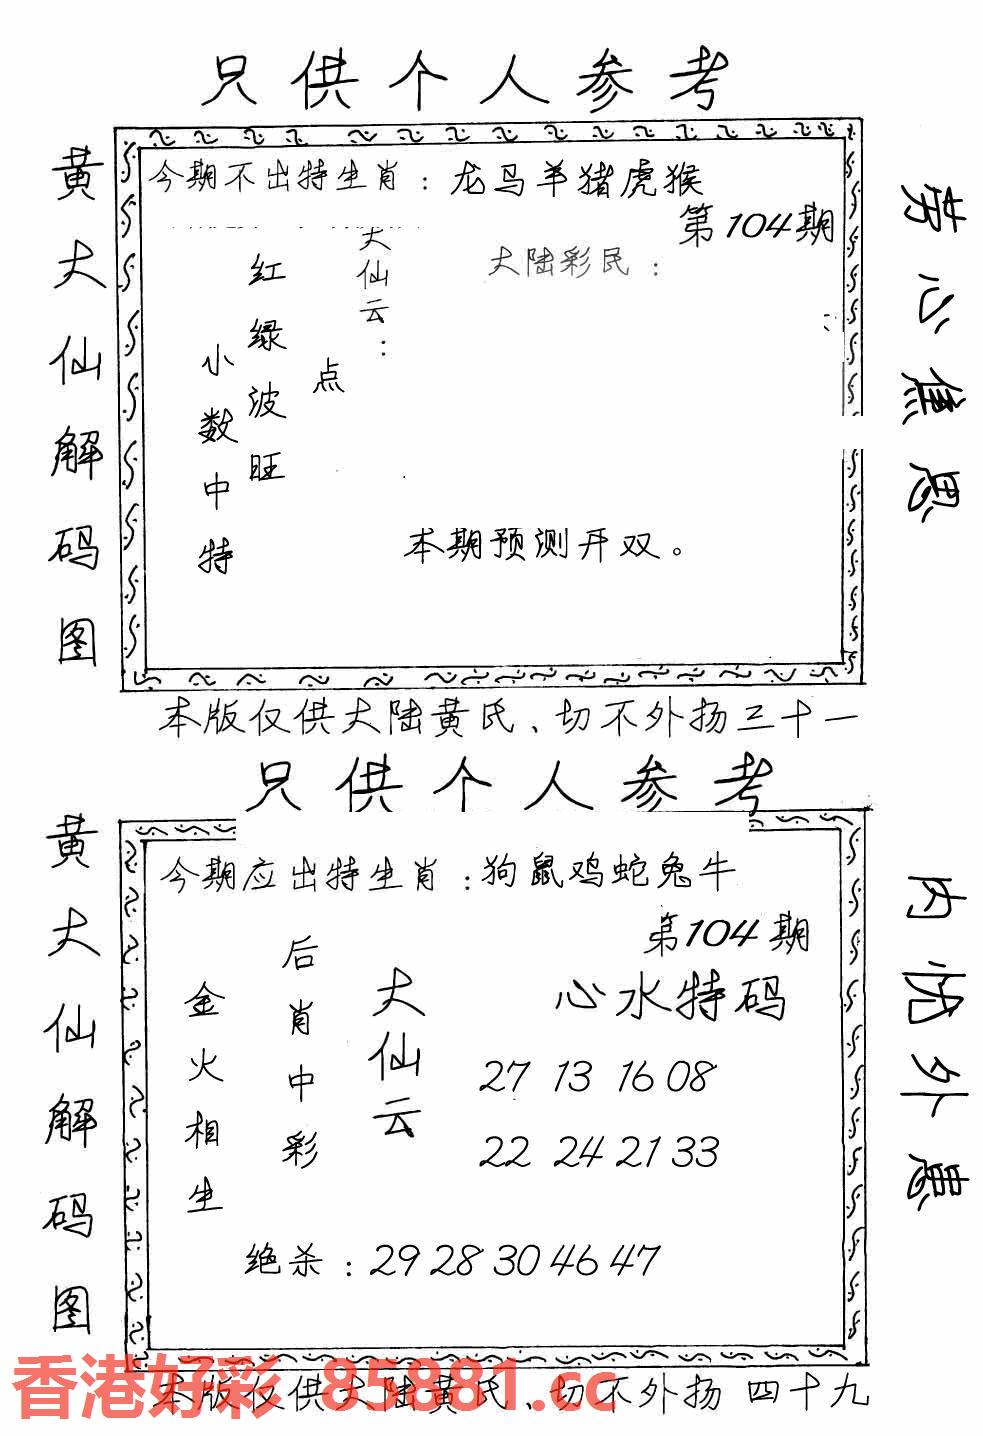 只供个人参考
黄大仙解码图
今期不出特生肖：龙马羊猪虎猴
第104期
大仙云：
大陆彩民：
点
红绿波旺
小数中特
本期预测开双。
劳心焦思
本版仅供大陆黄氏、切不外扬三十一
只供个人参考
黄大仙解码图
今期应出特生肖：狗鼠鸡蛇兔牛
第104期
大仙云
后肖中彩
金火相生
心水特码
27 13 16 08
22 24 21 33
绝杀：29 28 30 46 47
内忧外患
香港好彩 85881.cc
本版仅供大陆黄氏、切不外扬 四十九